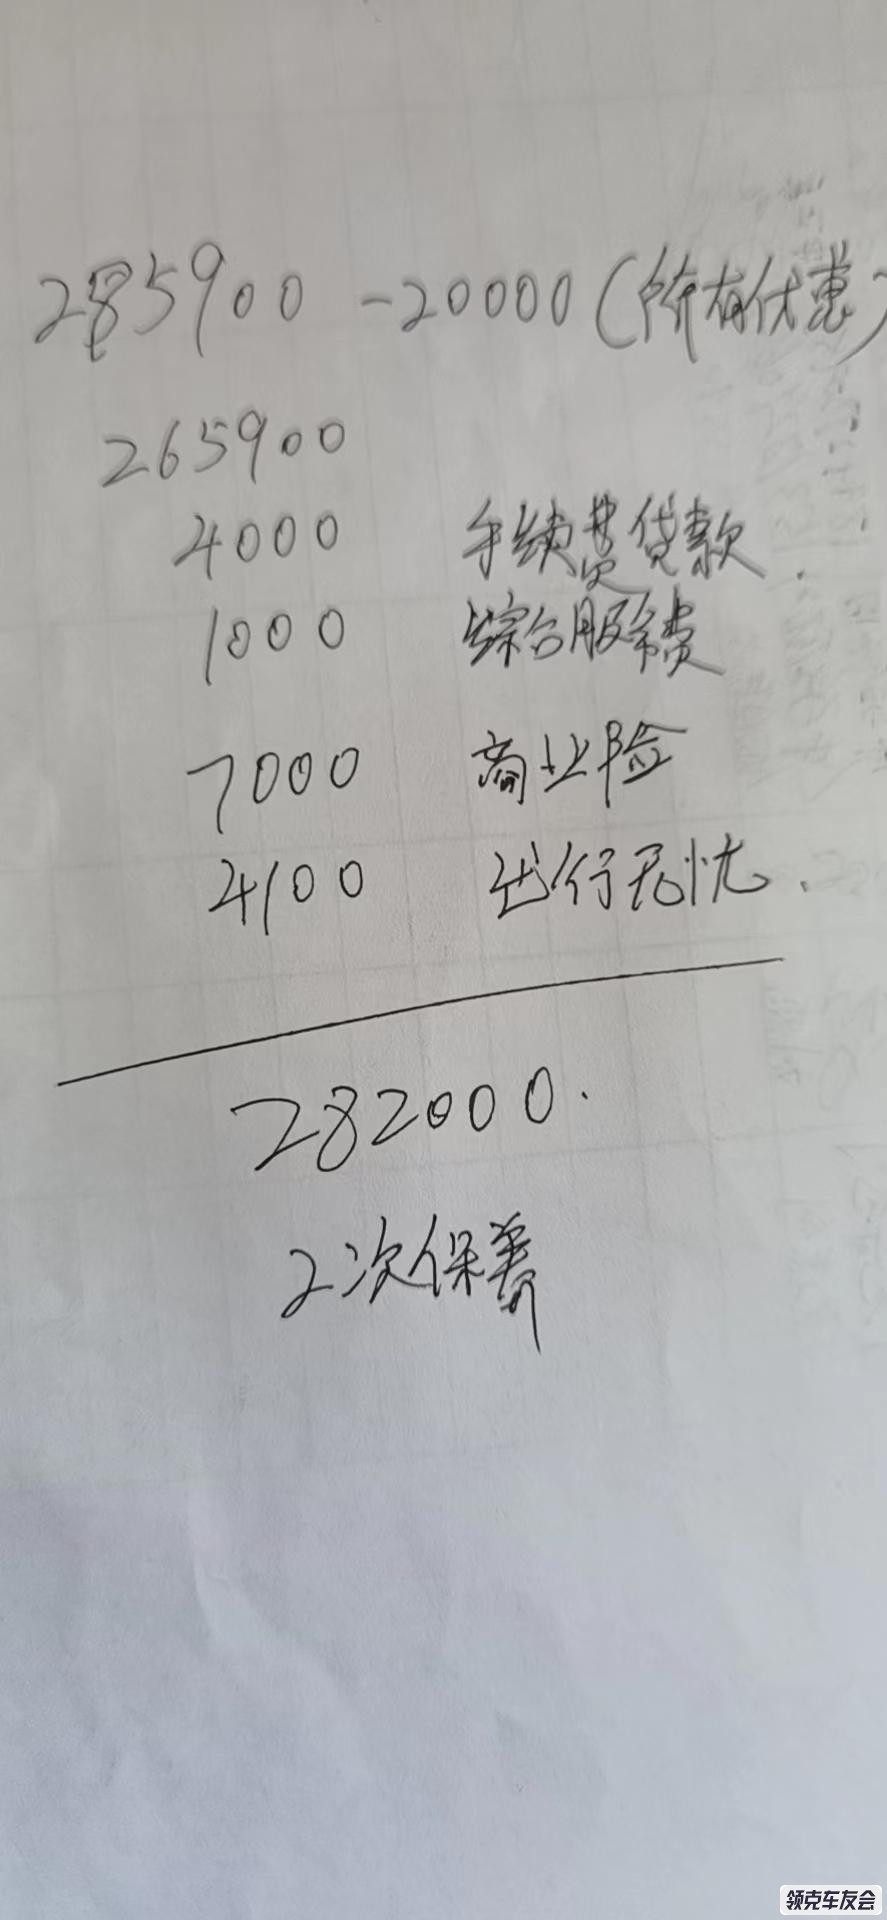 285900 -20000(所有优惠)
265900
4000 手续费贷款.
1000 综合服务费
7000 商业险
4100 出行无忧.
282000.
2次保养
领克车友会